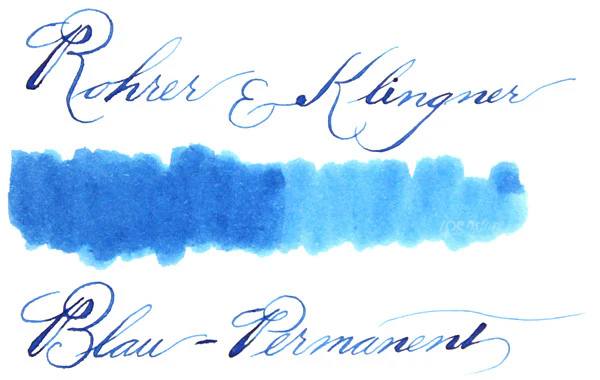 Rohrer & Klingner
Blau-Permanent